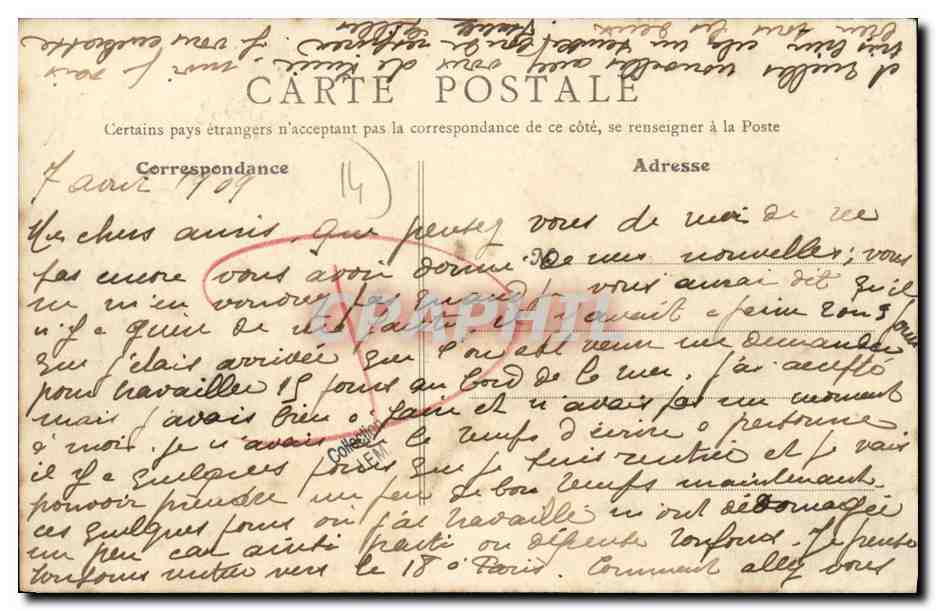 CARTE POSTALE
Certains pays étrangers n'acceptent pas la correspondance de ce côté, se renseigner à la Poste
Correspondance
Adresse
7 avril 1909
14
Mes chers amis. Que pensez vous de moi de ne
pas encore vous avoir donné de mes nouvelles; vous
ne m'en voudrez pas quand je vous aurai dit qu'il
n'y a qu'un de mes et n'avait a peine 2 ou 3 jours
que j'étais arrivée que l'on est venu me demander
pour travailler 15 jours au bord de la mer. J'ai accepté
mais j'avais bien à faire et n'avais pas un moment
à moi. je n'avais le temps d'écrire à personne
il y a quelques jours que je suis rentrée et je vais
pouvoir prendre un peu de bon temps maintenant
ces quelques jours où j'ai travaillé m'ont dédomagée
un peu car ainsi parti on dépense toujours. Je pense
toujours rentrer vers le 18 à Paris. Comment allez vous
et quelles nouvelles avez vous de moi je vais
très bien un temps J. vous embrasse
bien tous les deux
DELCAMPHIL
Collection
LEM